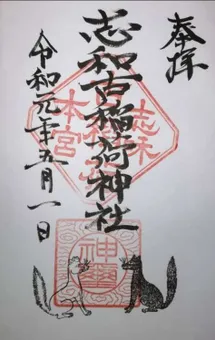 奉拝
志和古稲荷神社
令和元年五月一日
本宮
志和
神璽